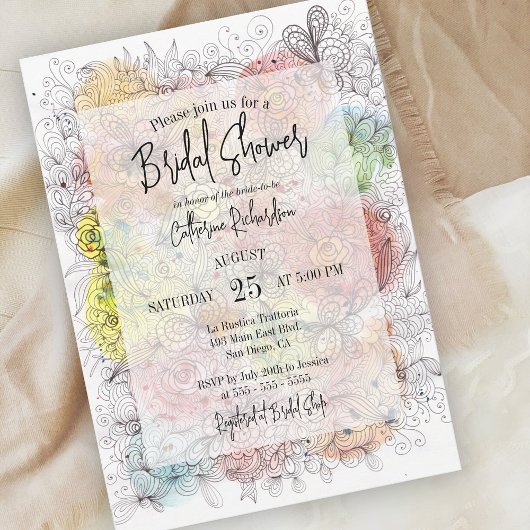 Please join us for a
Bridal Shower
in honor of the bride-to-be
Catherine Richardson
AUGUST
SATURDAY 25 AT 5:00 PM
La Rustica Trattoria
493 Main East Blvd.
San Diego, CA
RSVP by July 20th to Jessica
at 555 - 555 - 5555
Registered at Bridal Shop